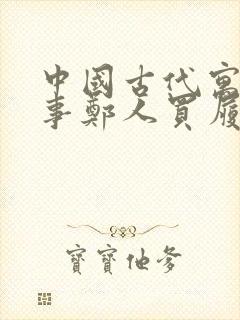 中國古代寓
事鄭人買履
寶寶他爹